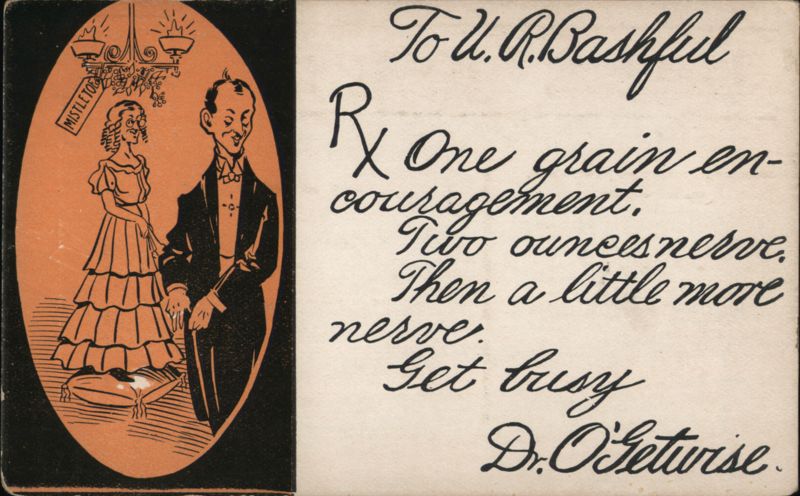 MISTLETOE
To U. R. Bashful
Rx One grain en-
couragement.
Two ounces nerve.
Then a little more
nerve.
Get busy
Dr. O'Getwise.